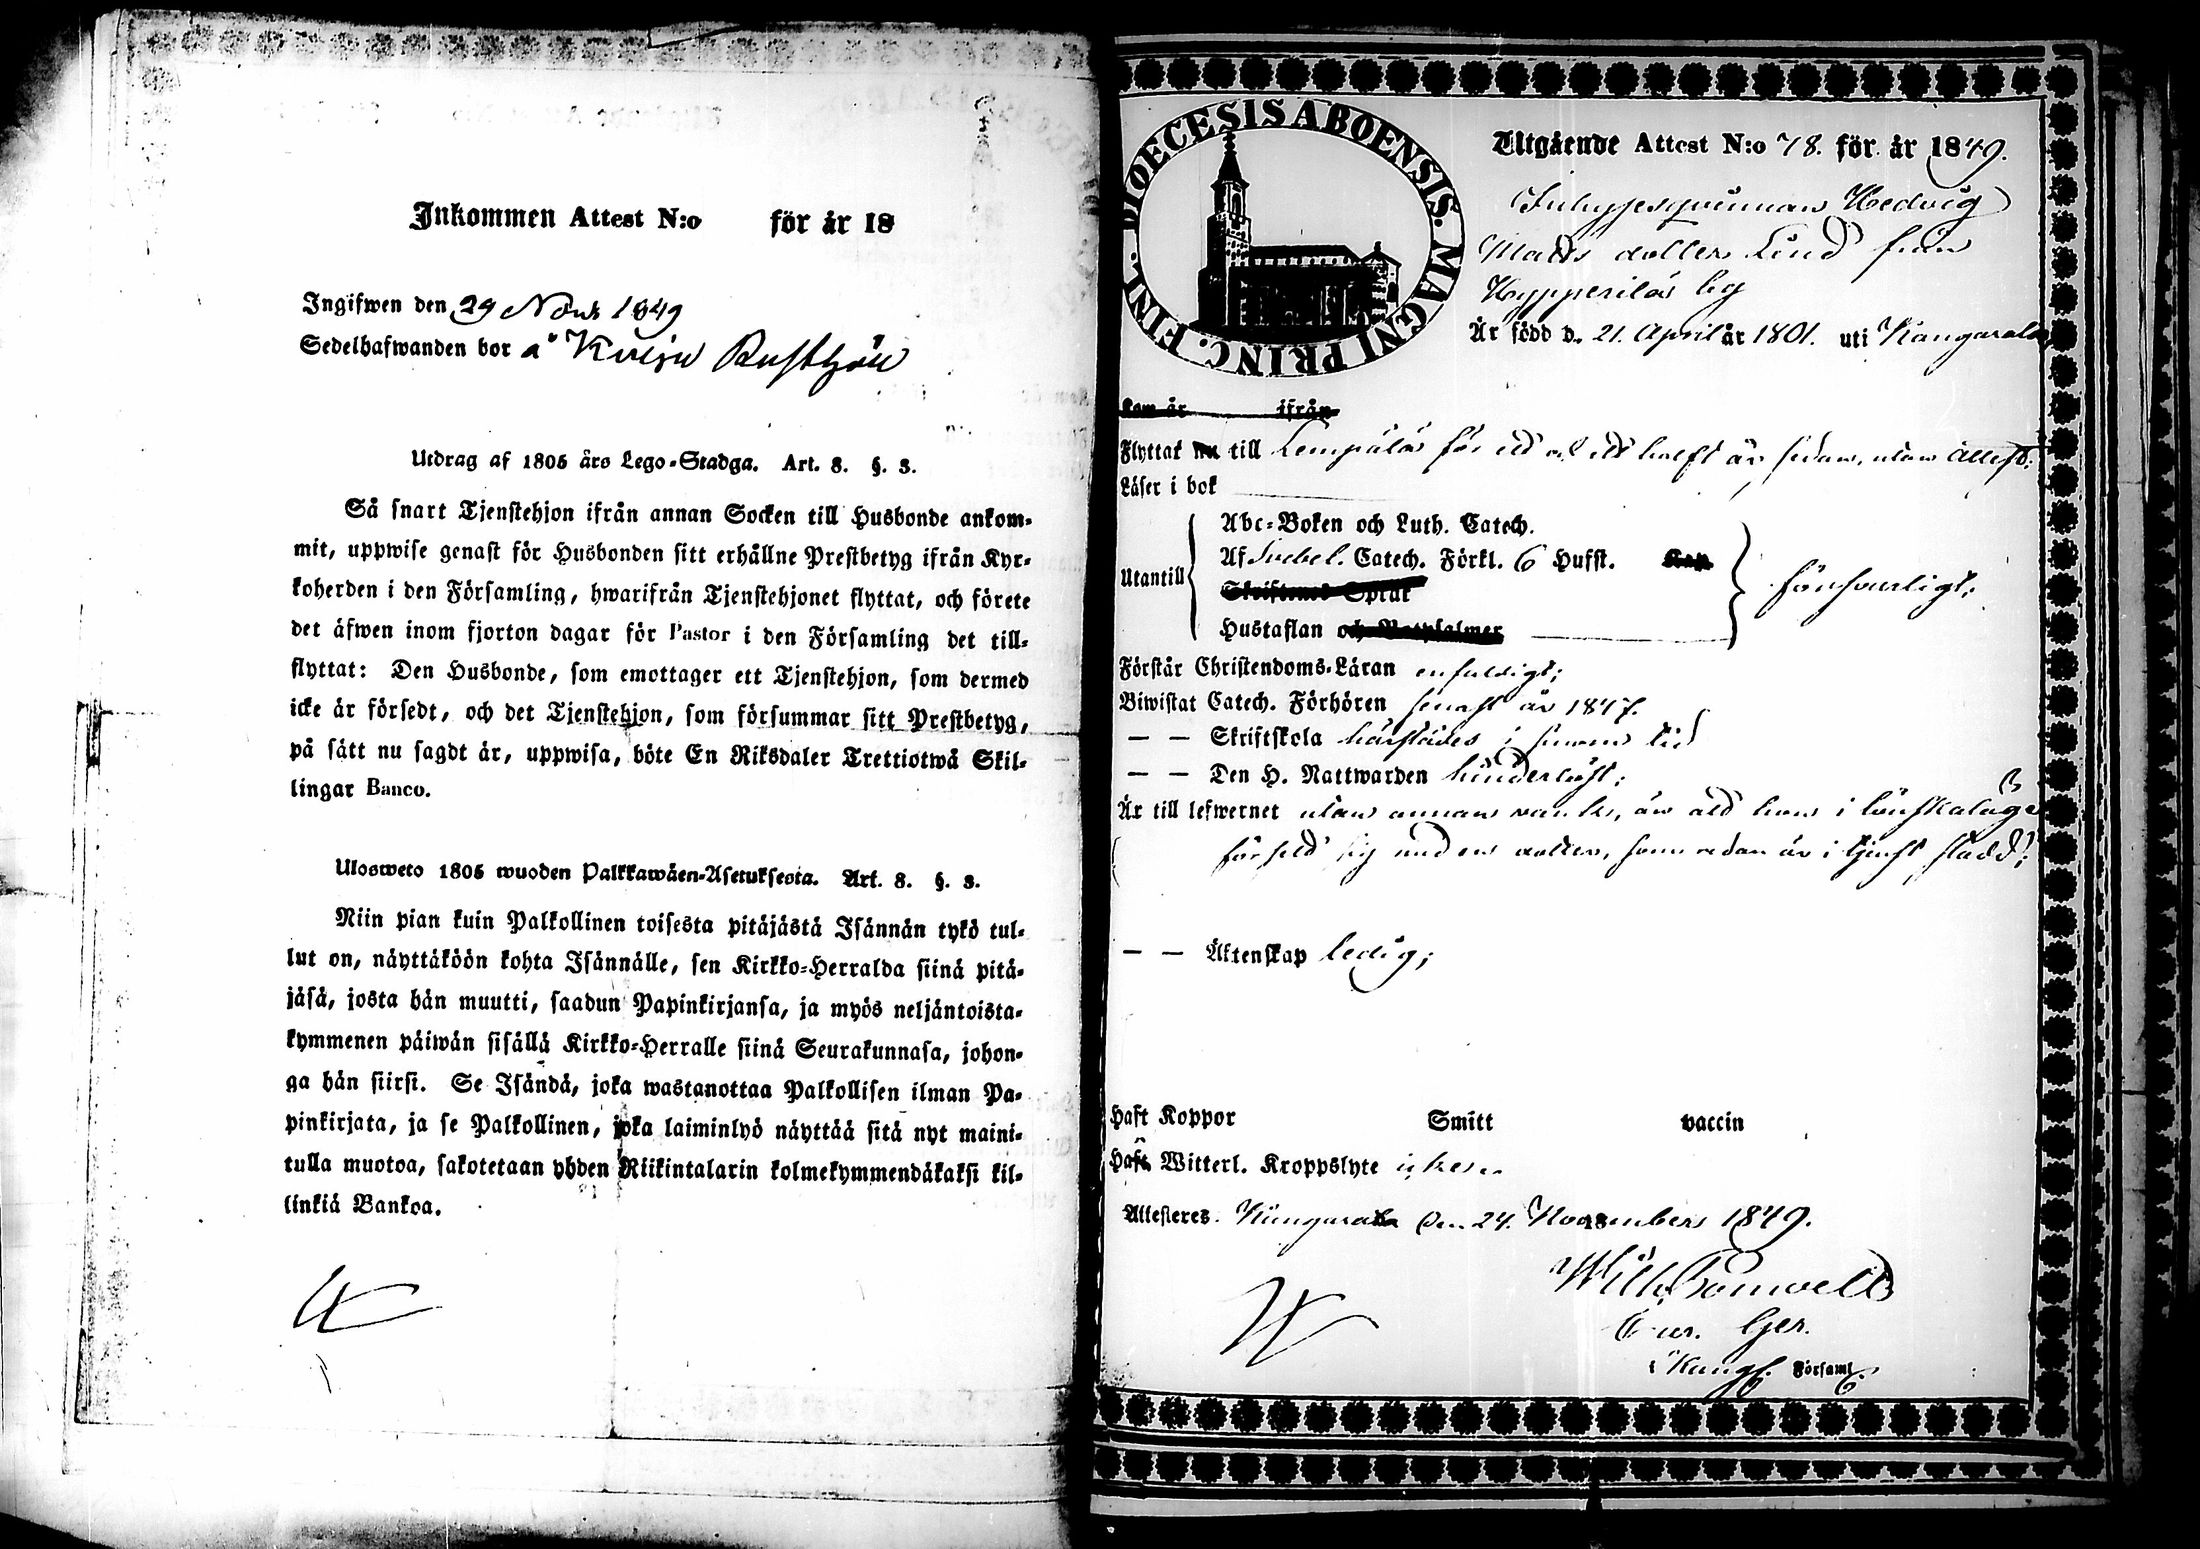 Inkommen Attest N:o för år 18
Ingifwen den 29 Novbr 1849
Sedelhafwanden bor å Rusthåll
Utdrag af 1805 års Lego-Stadga. Art. 8. §. 3.
Så snart Tjenstehjon ifrån annan Socken till Husbonde ankom-
mit, uppwise genast för Husbonden sitt erhållne Prestbetyg ifrån Kyr-
koherden i den Församling, hwarifrån Tjenstehjonet flyttat, och förete
det äfwen inom fjorton dagar för Pastor i den Församling det till-
flyttat: Den Husbonde, som emottager ett Tjenstehjon, som dermed
icke är försedt, och det Tjenstehjon, som försummar sitt Prestbetyg,
på sätt nu sagdt är, uppwisa, böte En Riksdaler Trettiotwå Skil-
lingar Banco.
Ulosweto 1805 wuoden Palkkawäen-Asetuksesta. Art. 8. §. 3.
Niin pian kuin Palkollinen toisesta pitäjästä Isännän tykö tul-
lut on, näyttäköön kohta Isännälle, sen Kirkko-Herralda siinä pitä-
jäsä, josta hän muutti, saadun Papinkirjansa, ja myös neljäntoista-
kymmenen päiwän sisällä Kirkko-Herralle siinä Seurakunnasa, johon-
ga hän siirsi. Se Isändä, joka wastanottaa Palkollisen ilman Pa-
pinkirjata, ja se Palkollinen, joka laiminlyö näyttää sitä nyt maini-
tulla muotoa, sakotetaan yhden Riikintalarin kolmekymmendäkaksi kil-
linkiä Bankoa.
DIOECESIS ABOENSIS. MAGNI PRINC. FINL.
Utgående Attest N:o 78. för år 1849.
Inhysesqvinnan Hedvig
Matts dotter Lind från
by
Är född d. 21. April år 1801. uti Kangasala
Kom år ifrån
Flyttat nu till Lempälä för ett och ett halft år sedan, utan attest;
Läser i bok
Utantill
Abc-Boken och Luth. Catech.
Af Svebel. Catech. Förkl. 6 Hufst. Kap.
Skriftenes Språk
Hustaflan och Botpsalmer
försvarligt;
Förstår Christendoms-Läran enfaldigt;
Biwistat Catech. Förhören senast år 1847.
— — Skriftskola härstädes i sinom tid
— — Den H. Nattwarden hinderlöst;
Är till lefwernet utan annan vank, än att hon i lönskaläge
försett sig med en dotter, som redan är i tjenst stadd;
— — Äktenskap ledig;
Haft Koppor Smitt vaccin
Haft Witterl. Kroppslyte icke
Attesteres. Kangasala den 24. November 1849.
i Kangs. Församl.